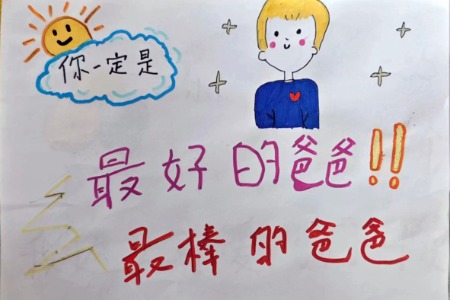 你一定是
最好的爸爸!!
最棒的爸爸